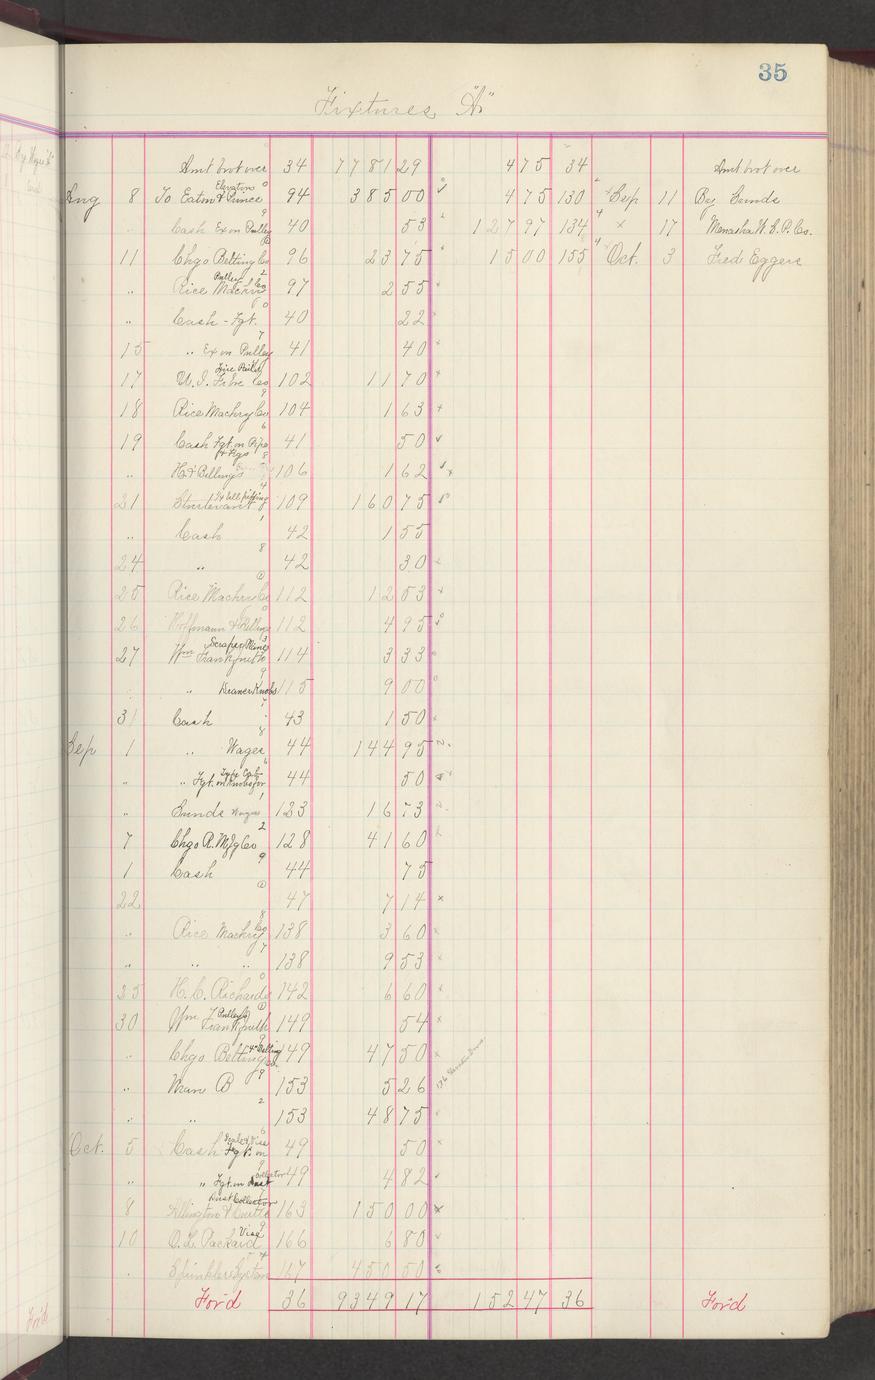 35
Fixtures "A"
Amt brot over 34 7781 29 475 34 Amt brot over
Elevators
Aug 8 To Eaton & Prince 94 385 00 475 130 Sep 11 By Sunds
" Cash Ex on Pulley 40 53 127 97 134 " 17 Menasha W. S. P. Co.
11 Chgo Belting Co 96 23 75 15 00 155 Oct. 3 Fred Eggers
Pulley
" Rice Machry Co 97 2 55
" Cash - Fgt. 40 22
15 " Ex on Pulley 41 40
Fire Pails
17 U. I. Fibre Co 102 11 70
18 Rice Machry Co 104 1 63
19 Cash Fgt. on Pipe 41 50
& Ftgs
" H. & Billings 106 1 62
21 Sturtevant 109 160 75
" Cash 42 1 55
24 " 42 30
25 Rice Machry Co 112 12 53
26 Hoffmann & Billings 112 4 95
Scraper
27 Wm Frankfurth 114 3 33
" Drawer Knobs 115 9 00
31 Cash 43 1 50
Sep 1 " Wages 44 144 95
" " Fgt. on Knobs for 44 50
" Sunds Wages 123 16 73
7 Chgo R. Mfg Co 128 41 60
1 Cash 44 75
22 47 7 14
" Rice Machry Co 138 3 60
" " " 138 9 53
25 H. C. Richards 142 6 60
Pulleys
30 Wm Frankfurth 149 54
" Chgo Belting Co. 4" Belting 149 47 50
" Man B 153 5 26
" " 153 48 75
Oct. 5 Cash Fgt. on 49 50
" " Fgt. on Dust Collector 49 4 82
Dust Collector
8 Allington & Curtis 163 150 00
10 O. L. Packard Vise 166 6 80
" Sprinkler System 167 450 50
For'd 36 9349 17 152 47 36 For'd